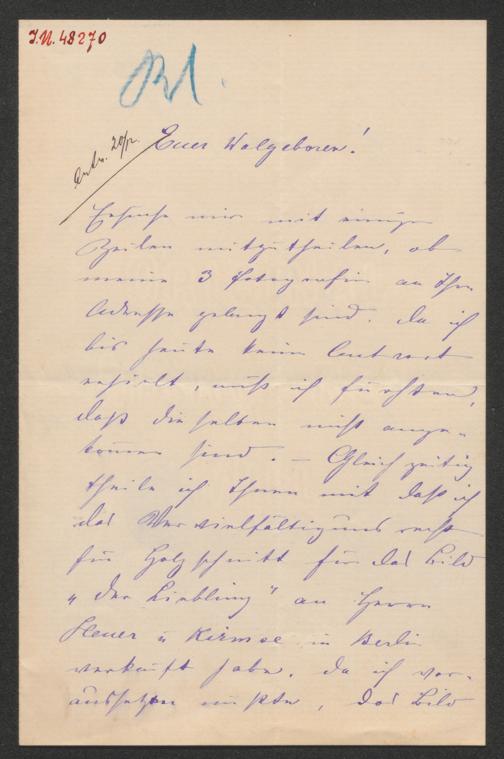 I.N. 48270
Bl.
Antw. 20/2.
Euer Wolgeboren!
Ersuche mir mit einigen
Zeilen mitzutheilen, ob
meine 3 Fotografien an Ihre
Adresse gelangt sind. Da ich
bis heute keine Antwort
erhielt, muß ich fürchten,
daß dieselben nicht ange-
kommen sind. – Gleichzeitig
theile ich Ihnen mit daß ich
das Vervielfältigungsrecht
für Holzschnitt für das Bild
„Der Liebling" an Herrn
Heuer u Kirmse in Berlin
verkauft habe. Da ich vor-
aussetzen mußte, das Bild